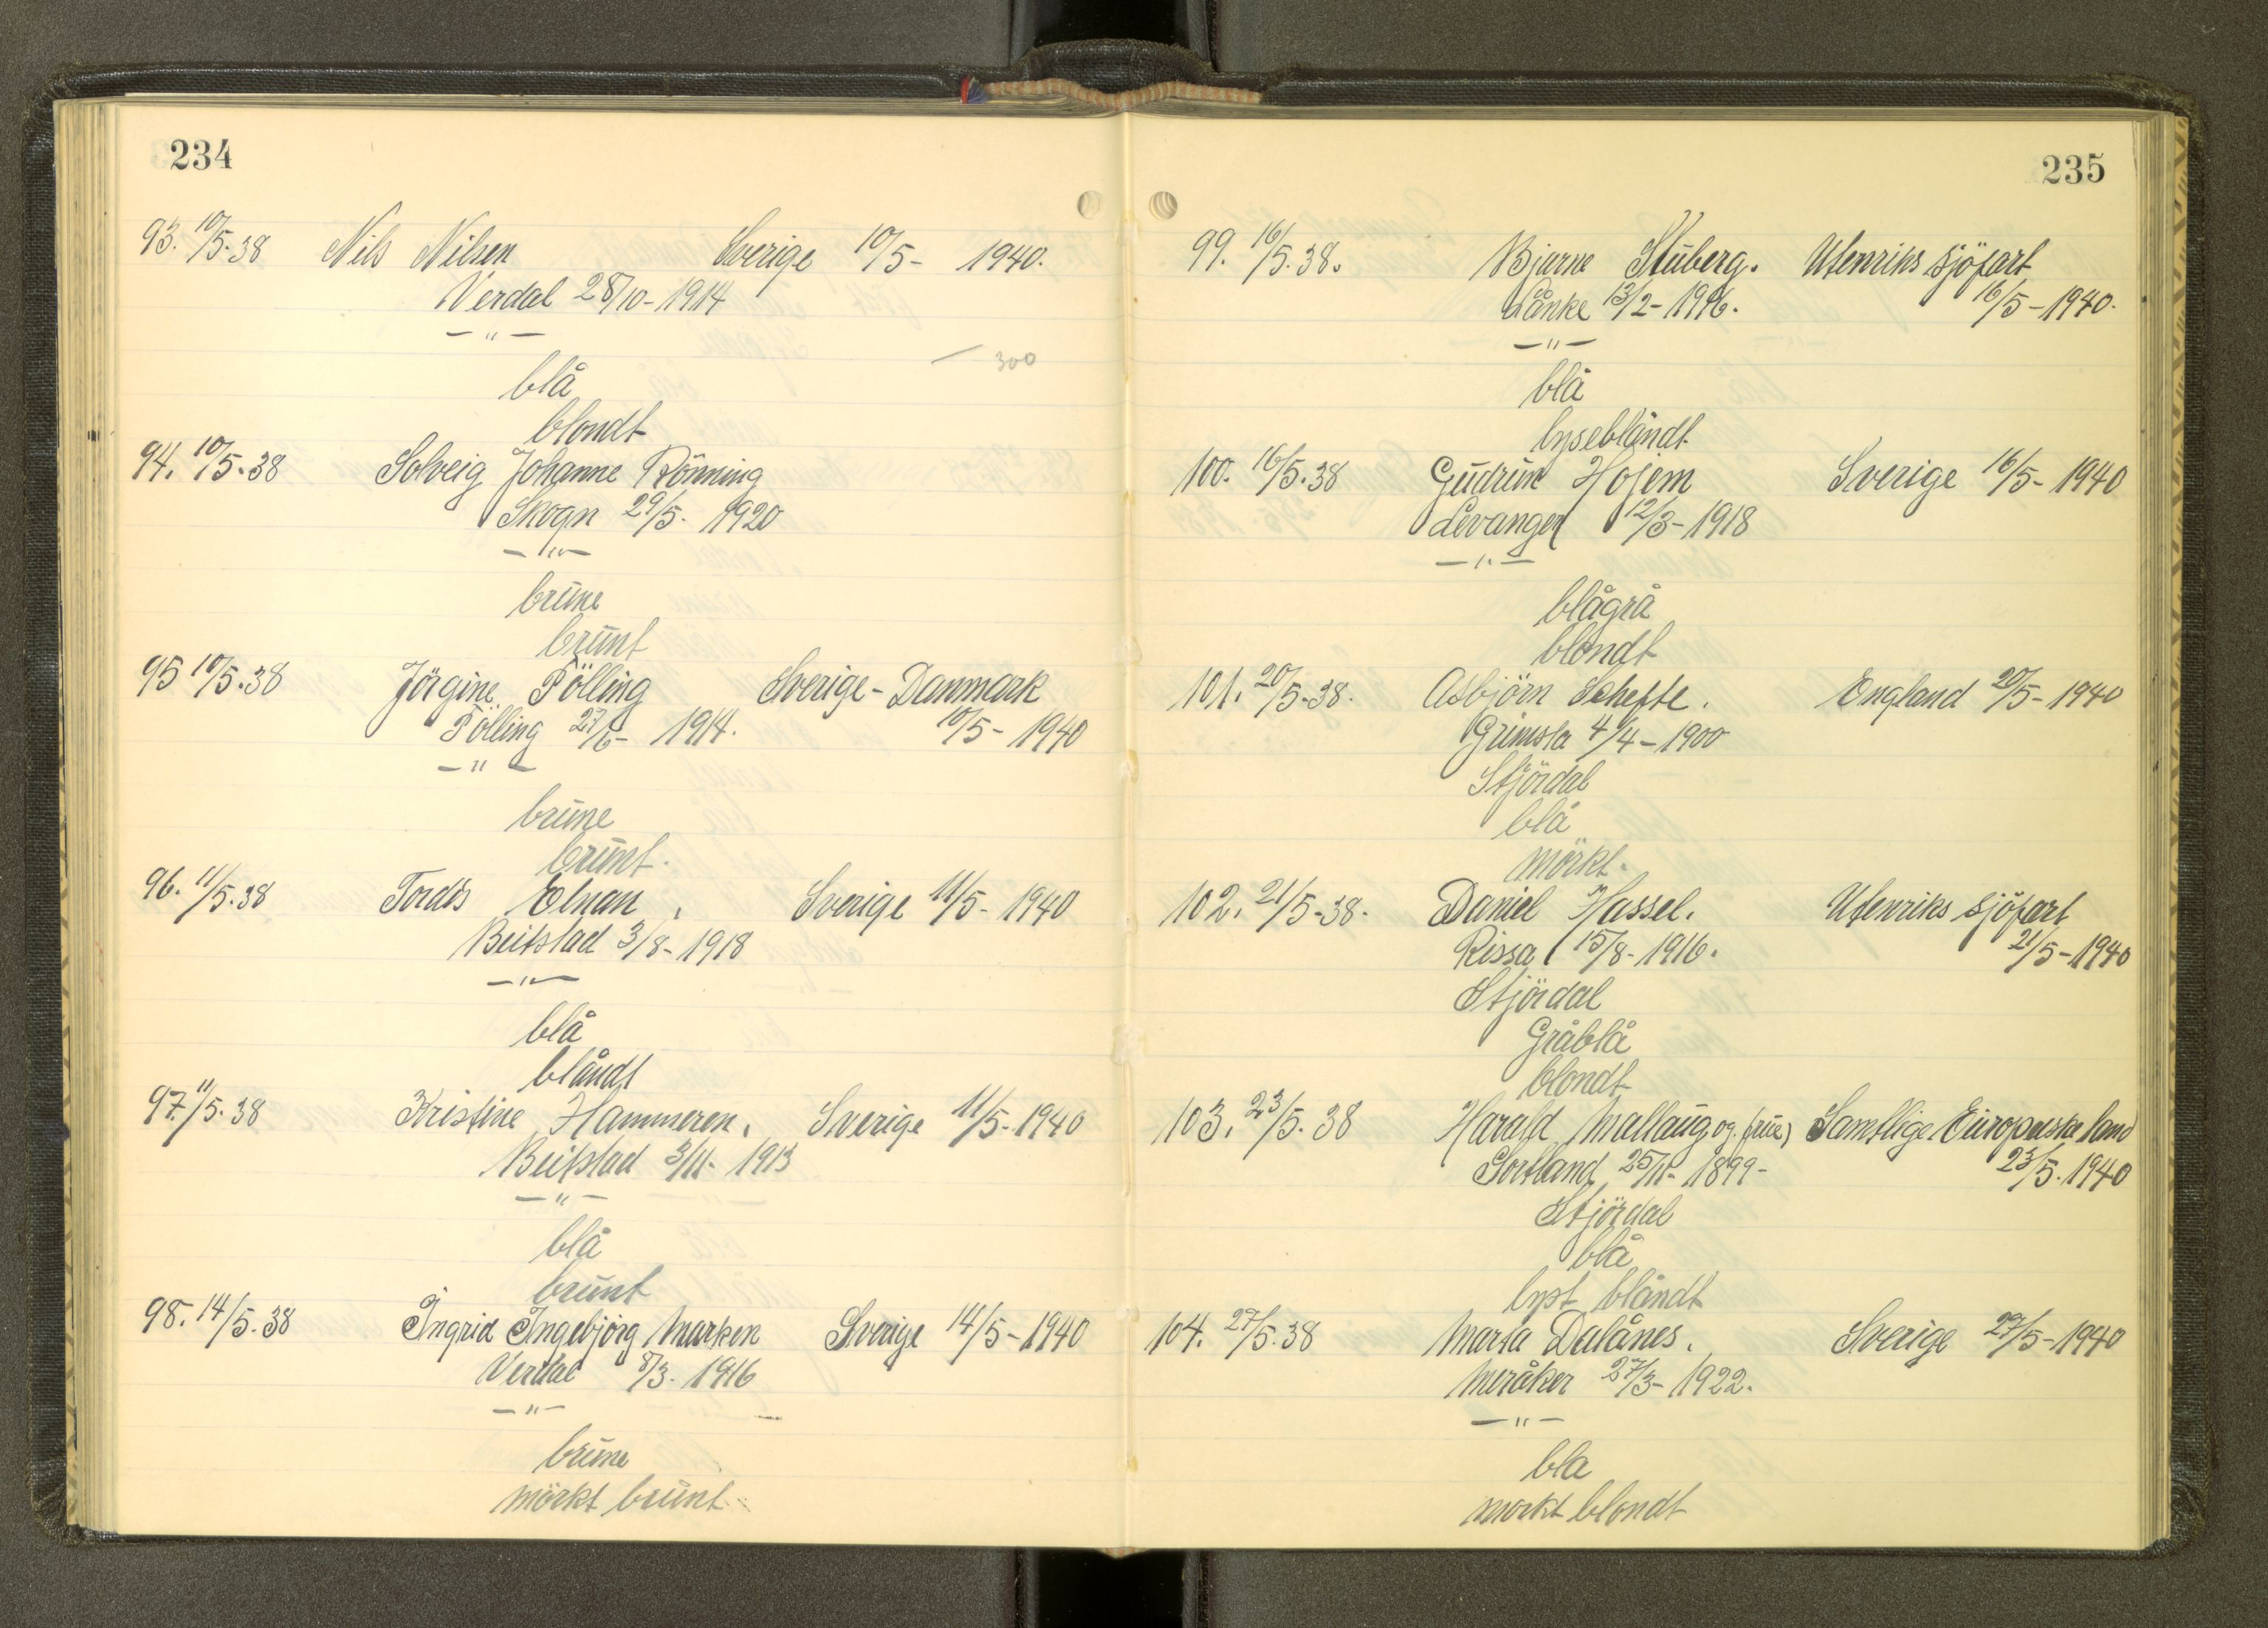 234
93. 10/5-38 Nils Nilsen Sverige 10/5- 1940.
Verdal 28/10-1914
— " —
300
blå
blondt
94. 10/5.38 Solveig Johanne Rönning
Skogn 29/5. 1920
— " —
brune
brunt
95 10/5.38 Jörgine Fölling Sverige-Danmark
Fölling 27/6- 1914. 10/5- 1940
— " —
brune
brunt.
96. 11/5.38 Tordis Elnan. Sverige 11/5- 1940
Beitstad 3/8-1918
— " —
blå
blåndt
97. 11/5.38 Kristine Hammeren. Sverige 11/5-1940
Beitstad 3/11- 1913
— " —
blå
brunt
98. 14/5.38 Ingrid Ingebjörg Marken Sverige 14/5-1940
Verdal 8/3. 1916
— " —
brune
mörkt brunt
235
99. 16/5.38. Bjarne Stuberg. Utenriks sjöfart
Lånke 13/2-1916. 16/5-1940.
— " —
blå
lyseblåndt
100. 16/5.38 Gudrun Hojem Sverige 16/5- 1940
Levanger 12/3-1918
— " —
blågrå
blondt
101. 20/5-38. Asbjörn Schefte. England 20/5-1940
4/4-1900
Stjördal
blå
mörkt.
102. 21/5-38. Daniel Hassel. Utenriks sjöfart
Rissa 15/8-1916. 21/5-1940
Stjördal
Gråblå
blondt
103. 23/5.38 Harald Mallaug og frue) Samtlige Europeiske land
Sortland 25/11- 1899- 23/5.1940
Stjördal
blå
lyst blåndt
104. 27/5.38 Marta Dalånes. Sverige 27/5-1940
Meråker 27/3-1922.
— " —
bla
morkt blondt